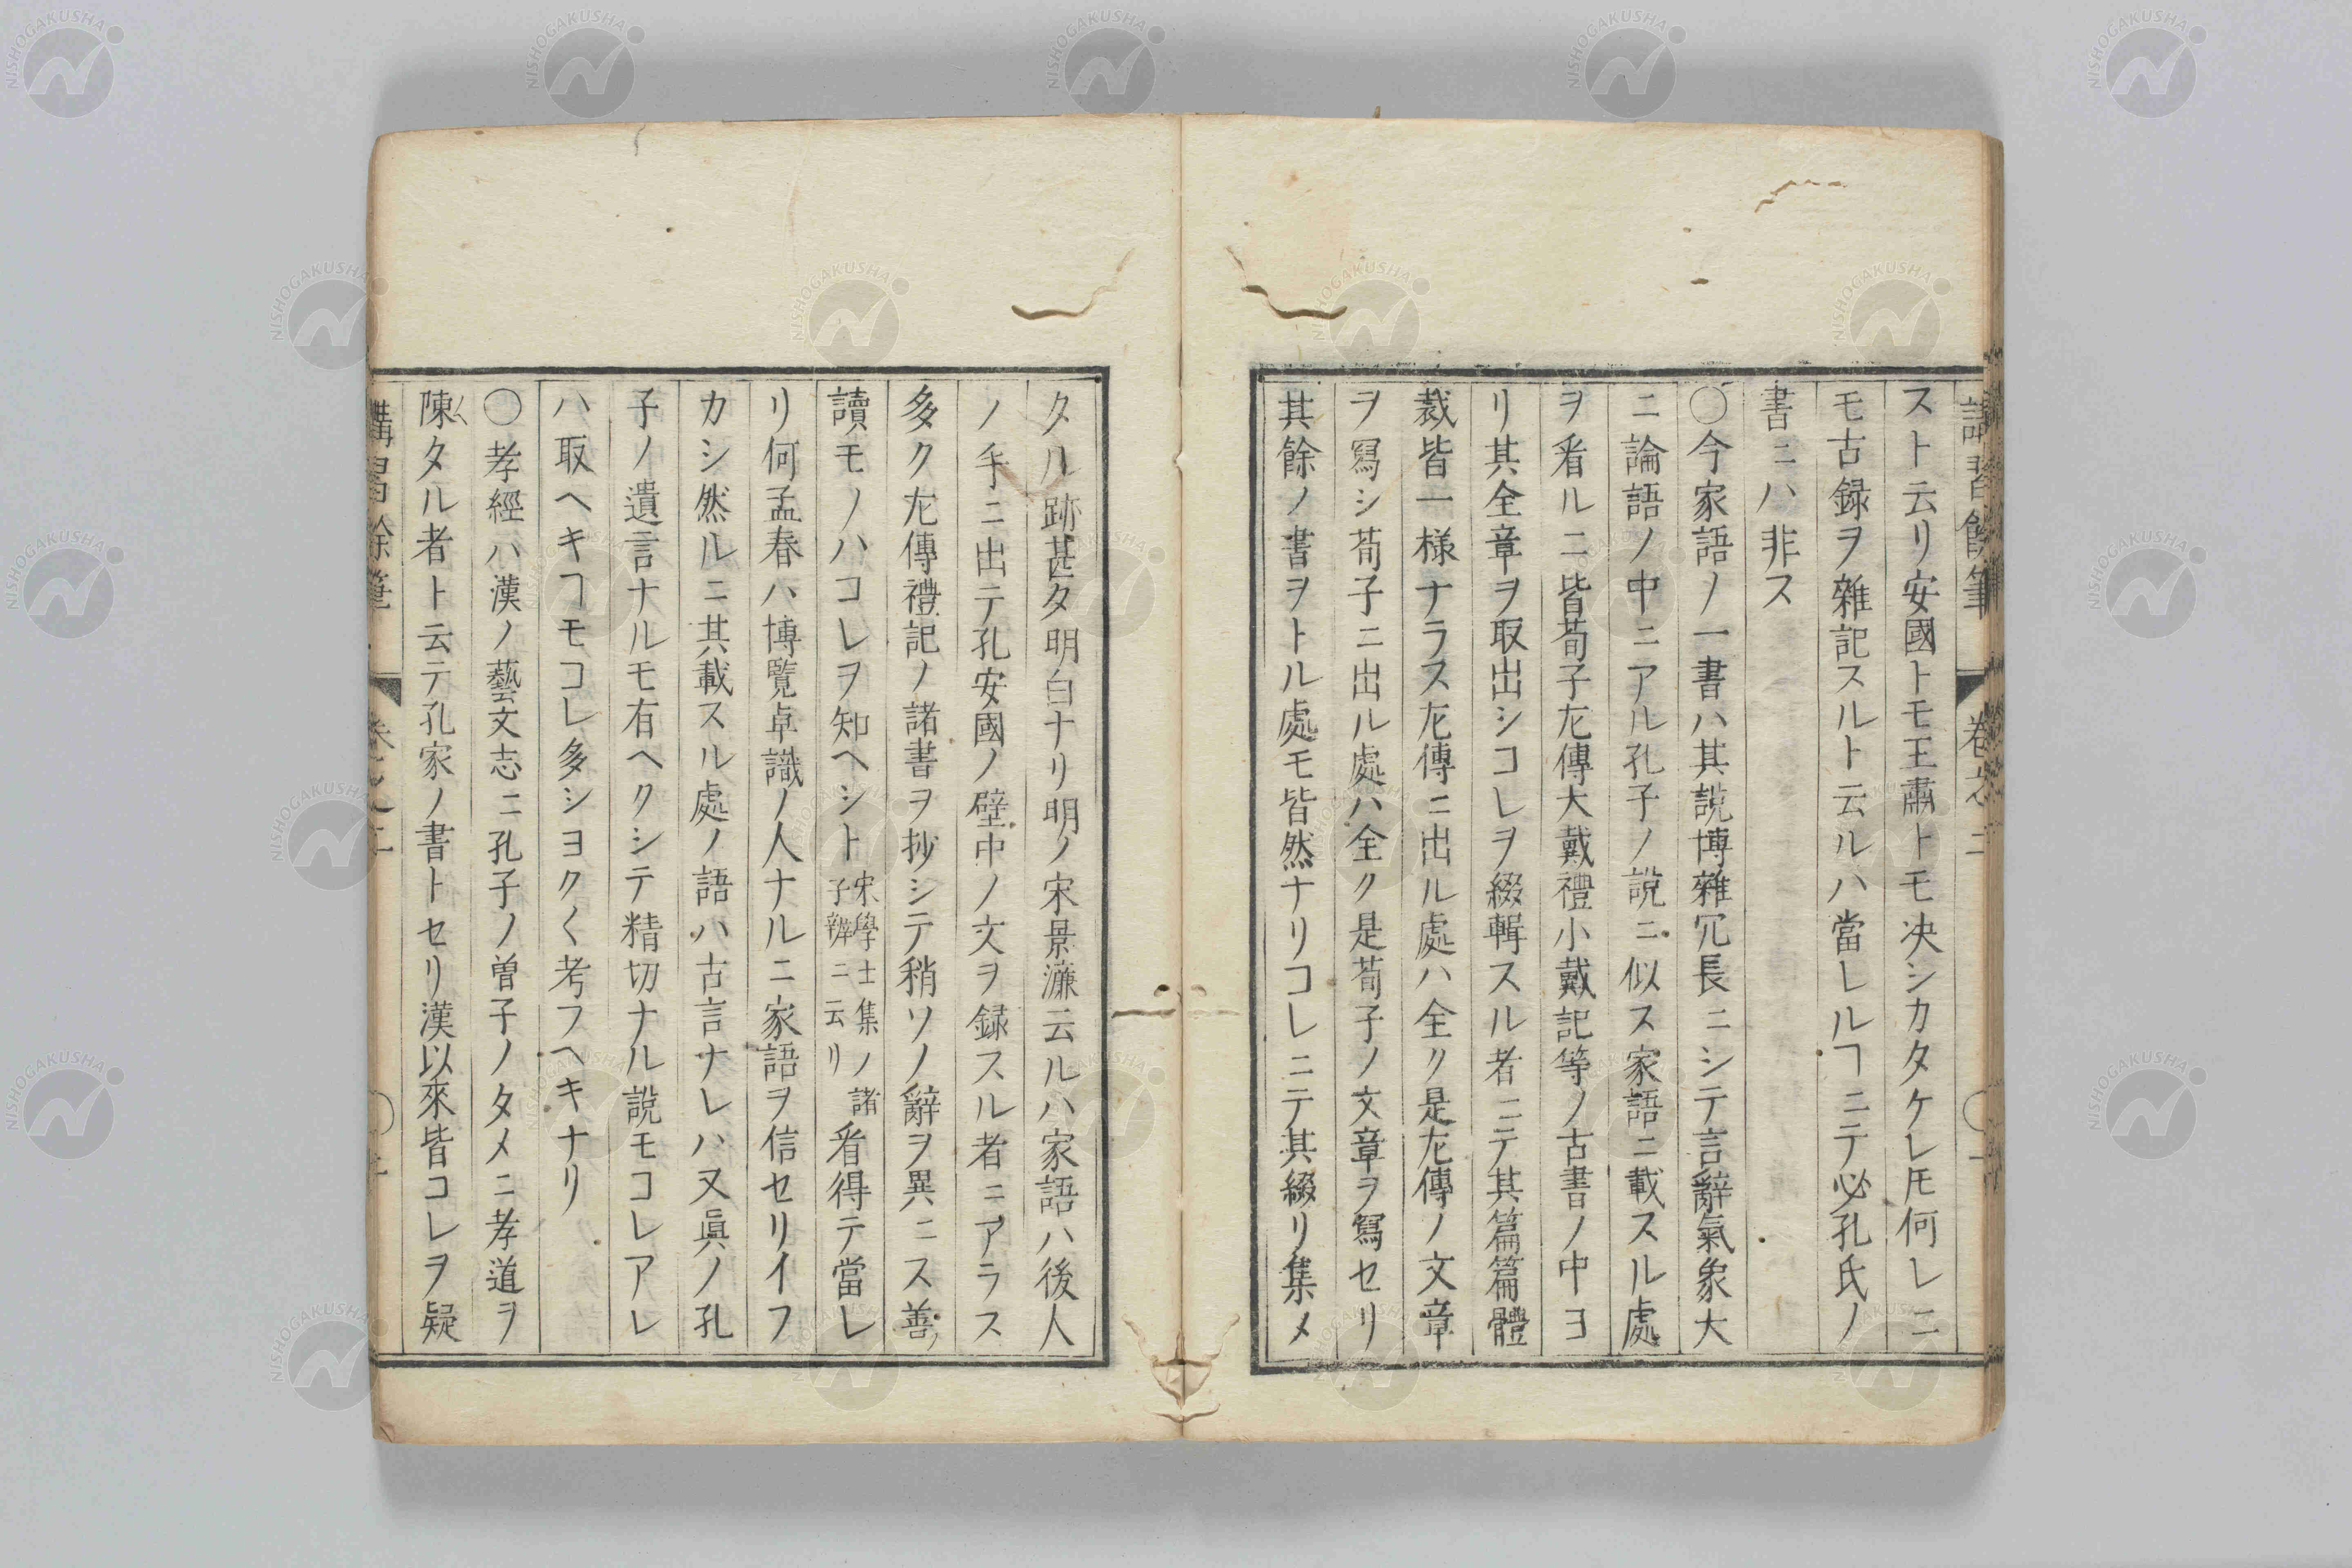 講習餘筆
卷之二
スト云リ安國トモ王肅トモ决シカタケレ𪜈何レニ
モ古録ヲ雜記スルト云ルハ當レルヿニテ必孔氏ノ
書ニハ非ス
〇今家語ノ一書ハ其説博雜冗長ニシテ言辭氣象大
ニ論語ノ中ニアル孔子ノ説ニ似ス家語ニ載スル處
ヲ看ルニ皆荀子左傳大戴禮小戴記等ノ古書ノ中ヨ
リ其全章ヲ取出シコレヲ綴輯スル者ニテ其篇篇體
裁皆一樣ナラス左傳ニ出ル處ハ全ク是左傳ノ文章
ヲ寫シ荀子ニ出ル處ハ全ク是荀子ノ文章ヲ寫セリ
其餘ノ書ヲトル處モ皆然ナリコレニテ其綴リ集メ
タル跡甚タ明白ナリ明ノ宋景濂云ルハ家語ハ後人
ノ手ニ出テ孔安國ノ壁中ノ文ヲ録スル者ニアラス
多ク左傳禮記ノ諸書ヲ抄シテ稍ソノ辭ヲ異ニス善ノ
讀モノハコレヲ知ヘシト
宋學士集ノ諸
子辨ニ云リ
看得テ當レ
リ何孟春ハ博覽卓識ノ人ナルニ家語ヲ信セリイフ
カシ然ルニ其載スル處ノ語ハ古言ナレハ又眞ノ孔
子ノ遺言ナルモ有ヘクシテ精切ナル説モコレアレ
ハ取ヘキヿモコレ多シヨク〱考フヘキナリ
〇孝經ハ漢ノ藝文志ニ孔子ノ曽子ノタメニ孝道ヲ
陳タル者ト云テ孔家ノ書トセリ漢以來皆コレヲ疑
講習餘筆
卷之二
NISHOGAKUSHA